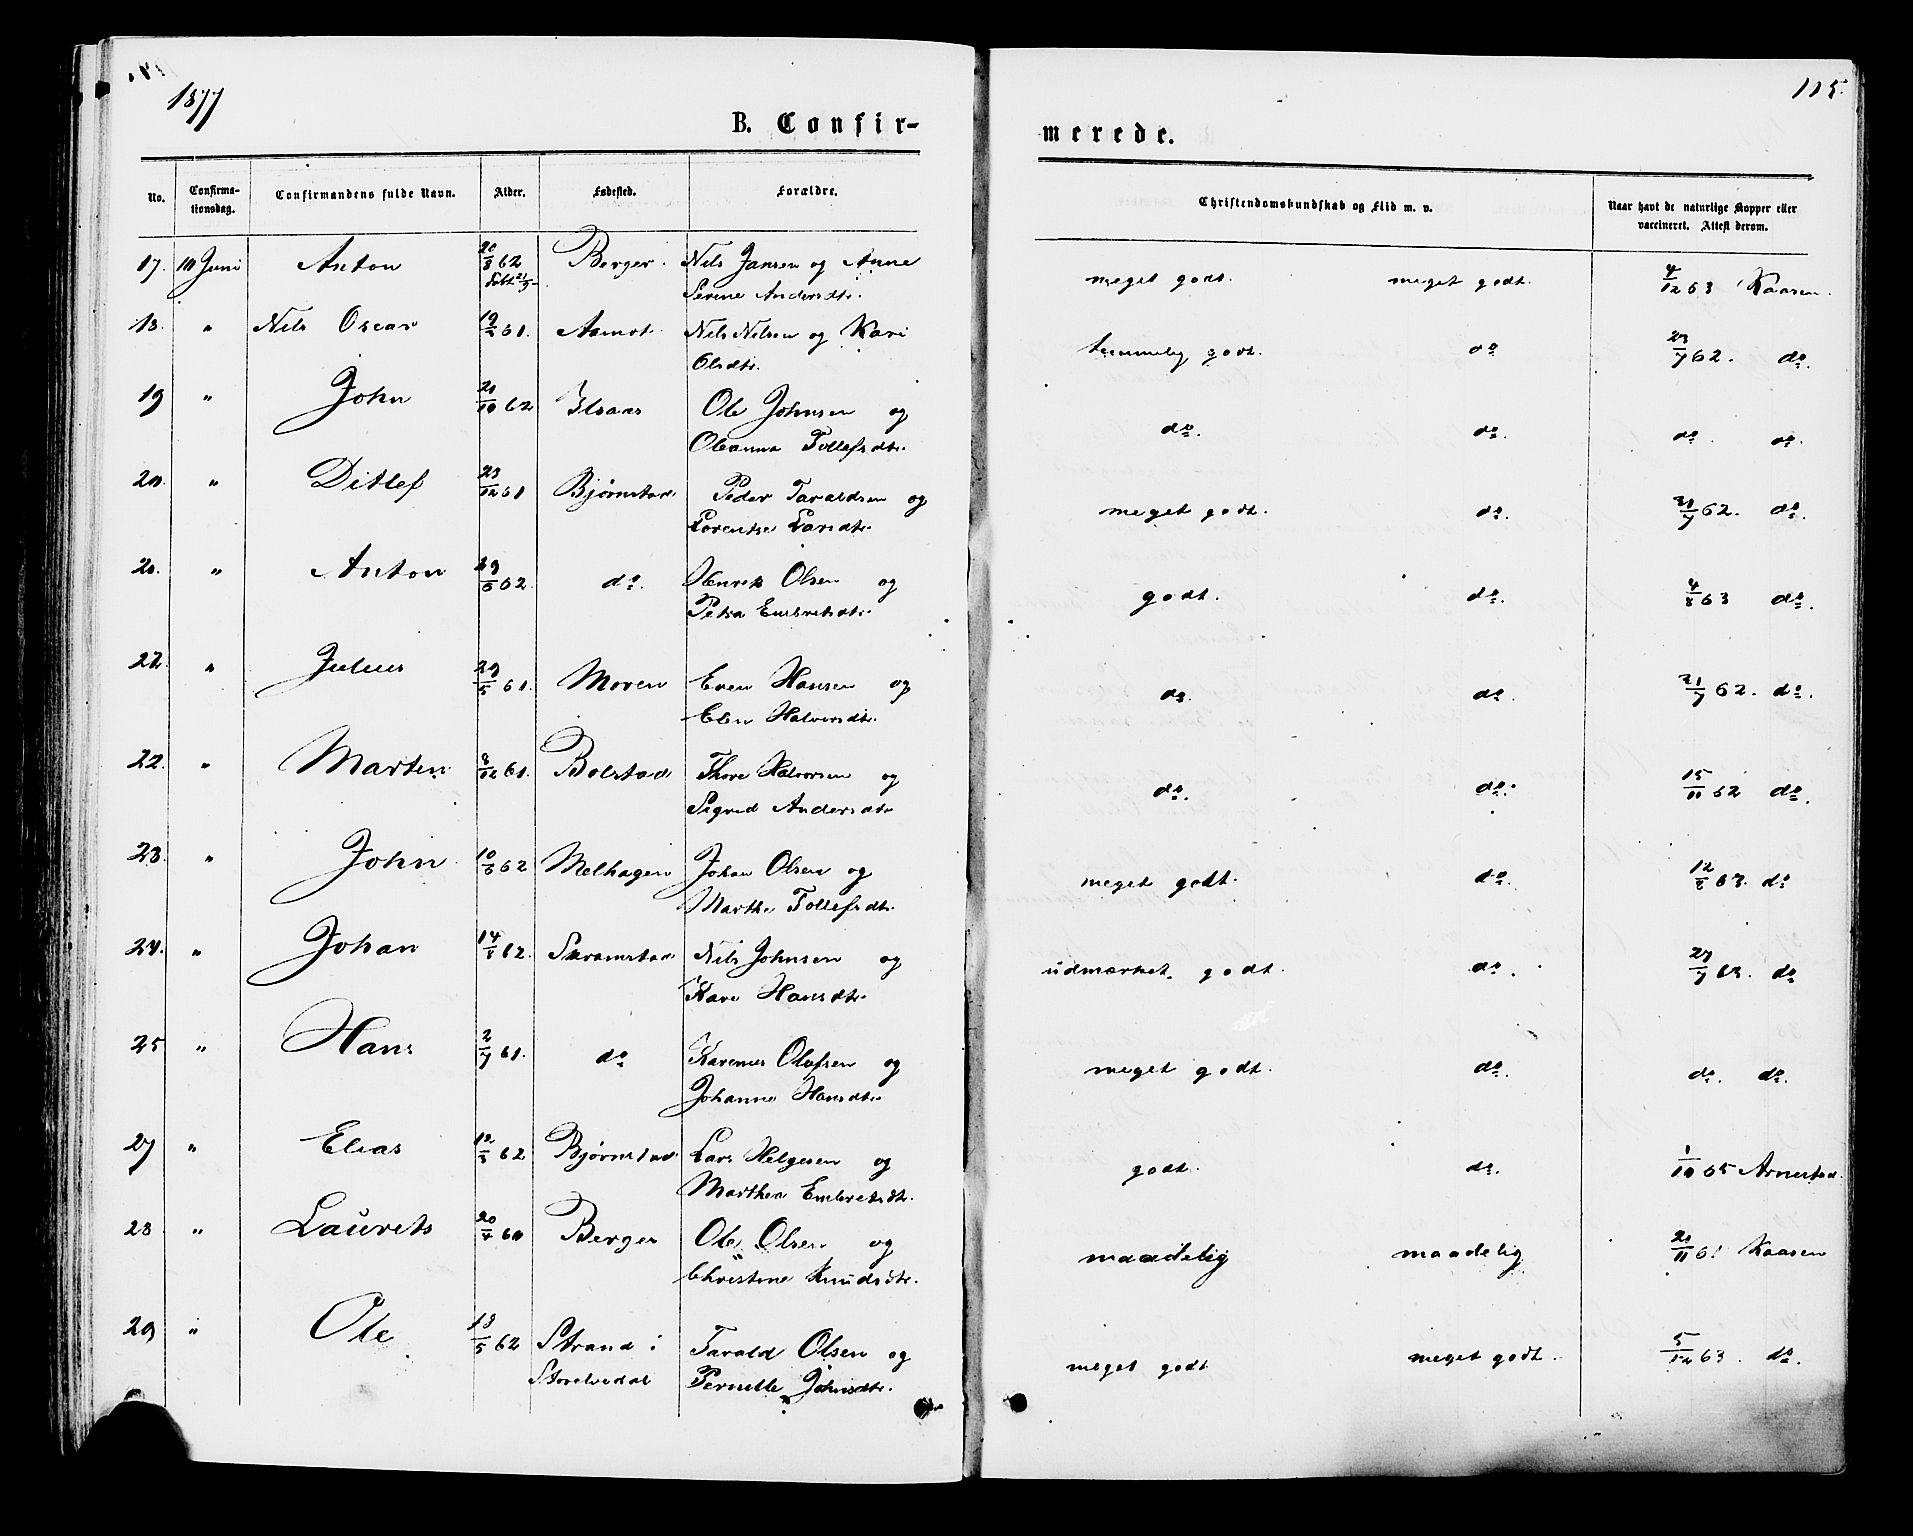 1877
115.
B. Confir-
merede.
No. Confirma-tionsdag. Confirmandens fulde Navn. Alder. Fødested. Forældre. Christendomskundskab og Flid m. v. Naar havt de naturlige Kopper eller vaccineret. Attest derom.
17. 10 Juni Anton 20/8 62 Berger. Nils Jansen og Anne meget godt. meget godt. 4/12 63 Kaasen.
Serine Andersdtr.
18. " Nils Oscar 61. Aamot. Nils Nilsen og Kari temmelig godt. do 23/7 62. do.
Olsdtr.
19 " John 21/10 62 Ilsaas Ole Johnsen og do. do. do. do.
Oleanna Tollefsdtr.
20. " Ditlef 23/12 61 Bjørnstad Peder Taraldsen og meget godt. do. 21/7 62. do.
Lorentse Larsdtr.
" Anton 62. do. Henrik Olsen og godt. do. 4/8 63 do.
Petra Embretsdtr.
22. " Julius 29/5 61. Moren Even Hansen og do. do. 21/7 62. do.
Elen Halvorsdtr.
22. " Martin 8/12 61. Bolstad Thore Halvorsen og do. do. 15/11 62 do.
Sigrid Andersdtr
23. " John 62 Melhagen Johan Olsen og meget godt. do. 12/8 63. do
Marthe Tollefsdtr.
24. " Johan 14/8 62. Skramstad Nils Johnsen og udmærket godt. do. 27/7 63. do
Kari Hansdtr.
25 " Hans 2/7 61. do Karenus Olafsen og meget godt. do. do. do.
Johanne Hansdtr.
27 " Elias 62 Bjørnstad Lars Helgesen og godt. do. 1/10 65 Arnestad.
Marthea Embretsdtr.
28 " Laurits 20/4 60 Berger Ole Olsen og maadelig maadelig 20/11 61 Kaasen
Christine Knudsdtr.
29 " Ole 13/5 62 Strand i Tarald Olsen og meget godt meget godt. 5/12 63. do.
Storelvedal Pernille Johnsdtr.